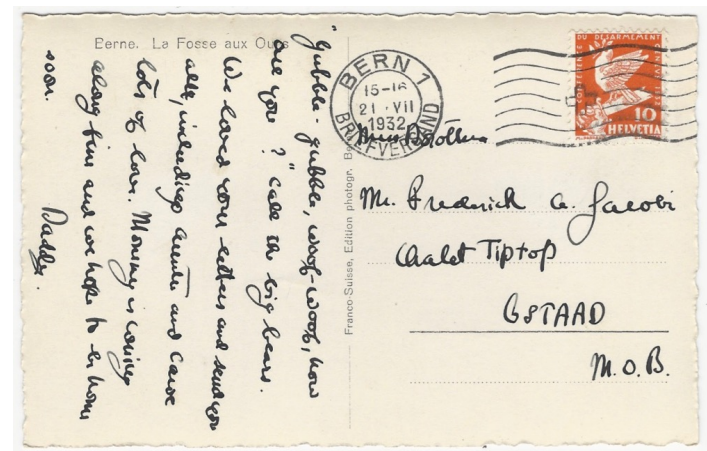 Berne. La Fosse aux Ours
"Gubble-gubble, woof-woof, how
are you?" call the big bears.
We loved your letters and send you
all, including and
lots of love. Mommy is
along fine and we hope to be home
soon.
Daddy.
Franco-Suisse, Edition photogr. Be
BERN 1
15-16
21.VII
1932
BRIEFVERSAND
CONFERENCE DU DESARMEMENT
10
HELVETIA
Miss Dorothea
Mr. Frederick A. Jacobi
Chalet Tiptop
GSTAAD
M.O.B.